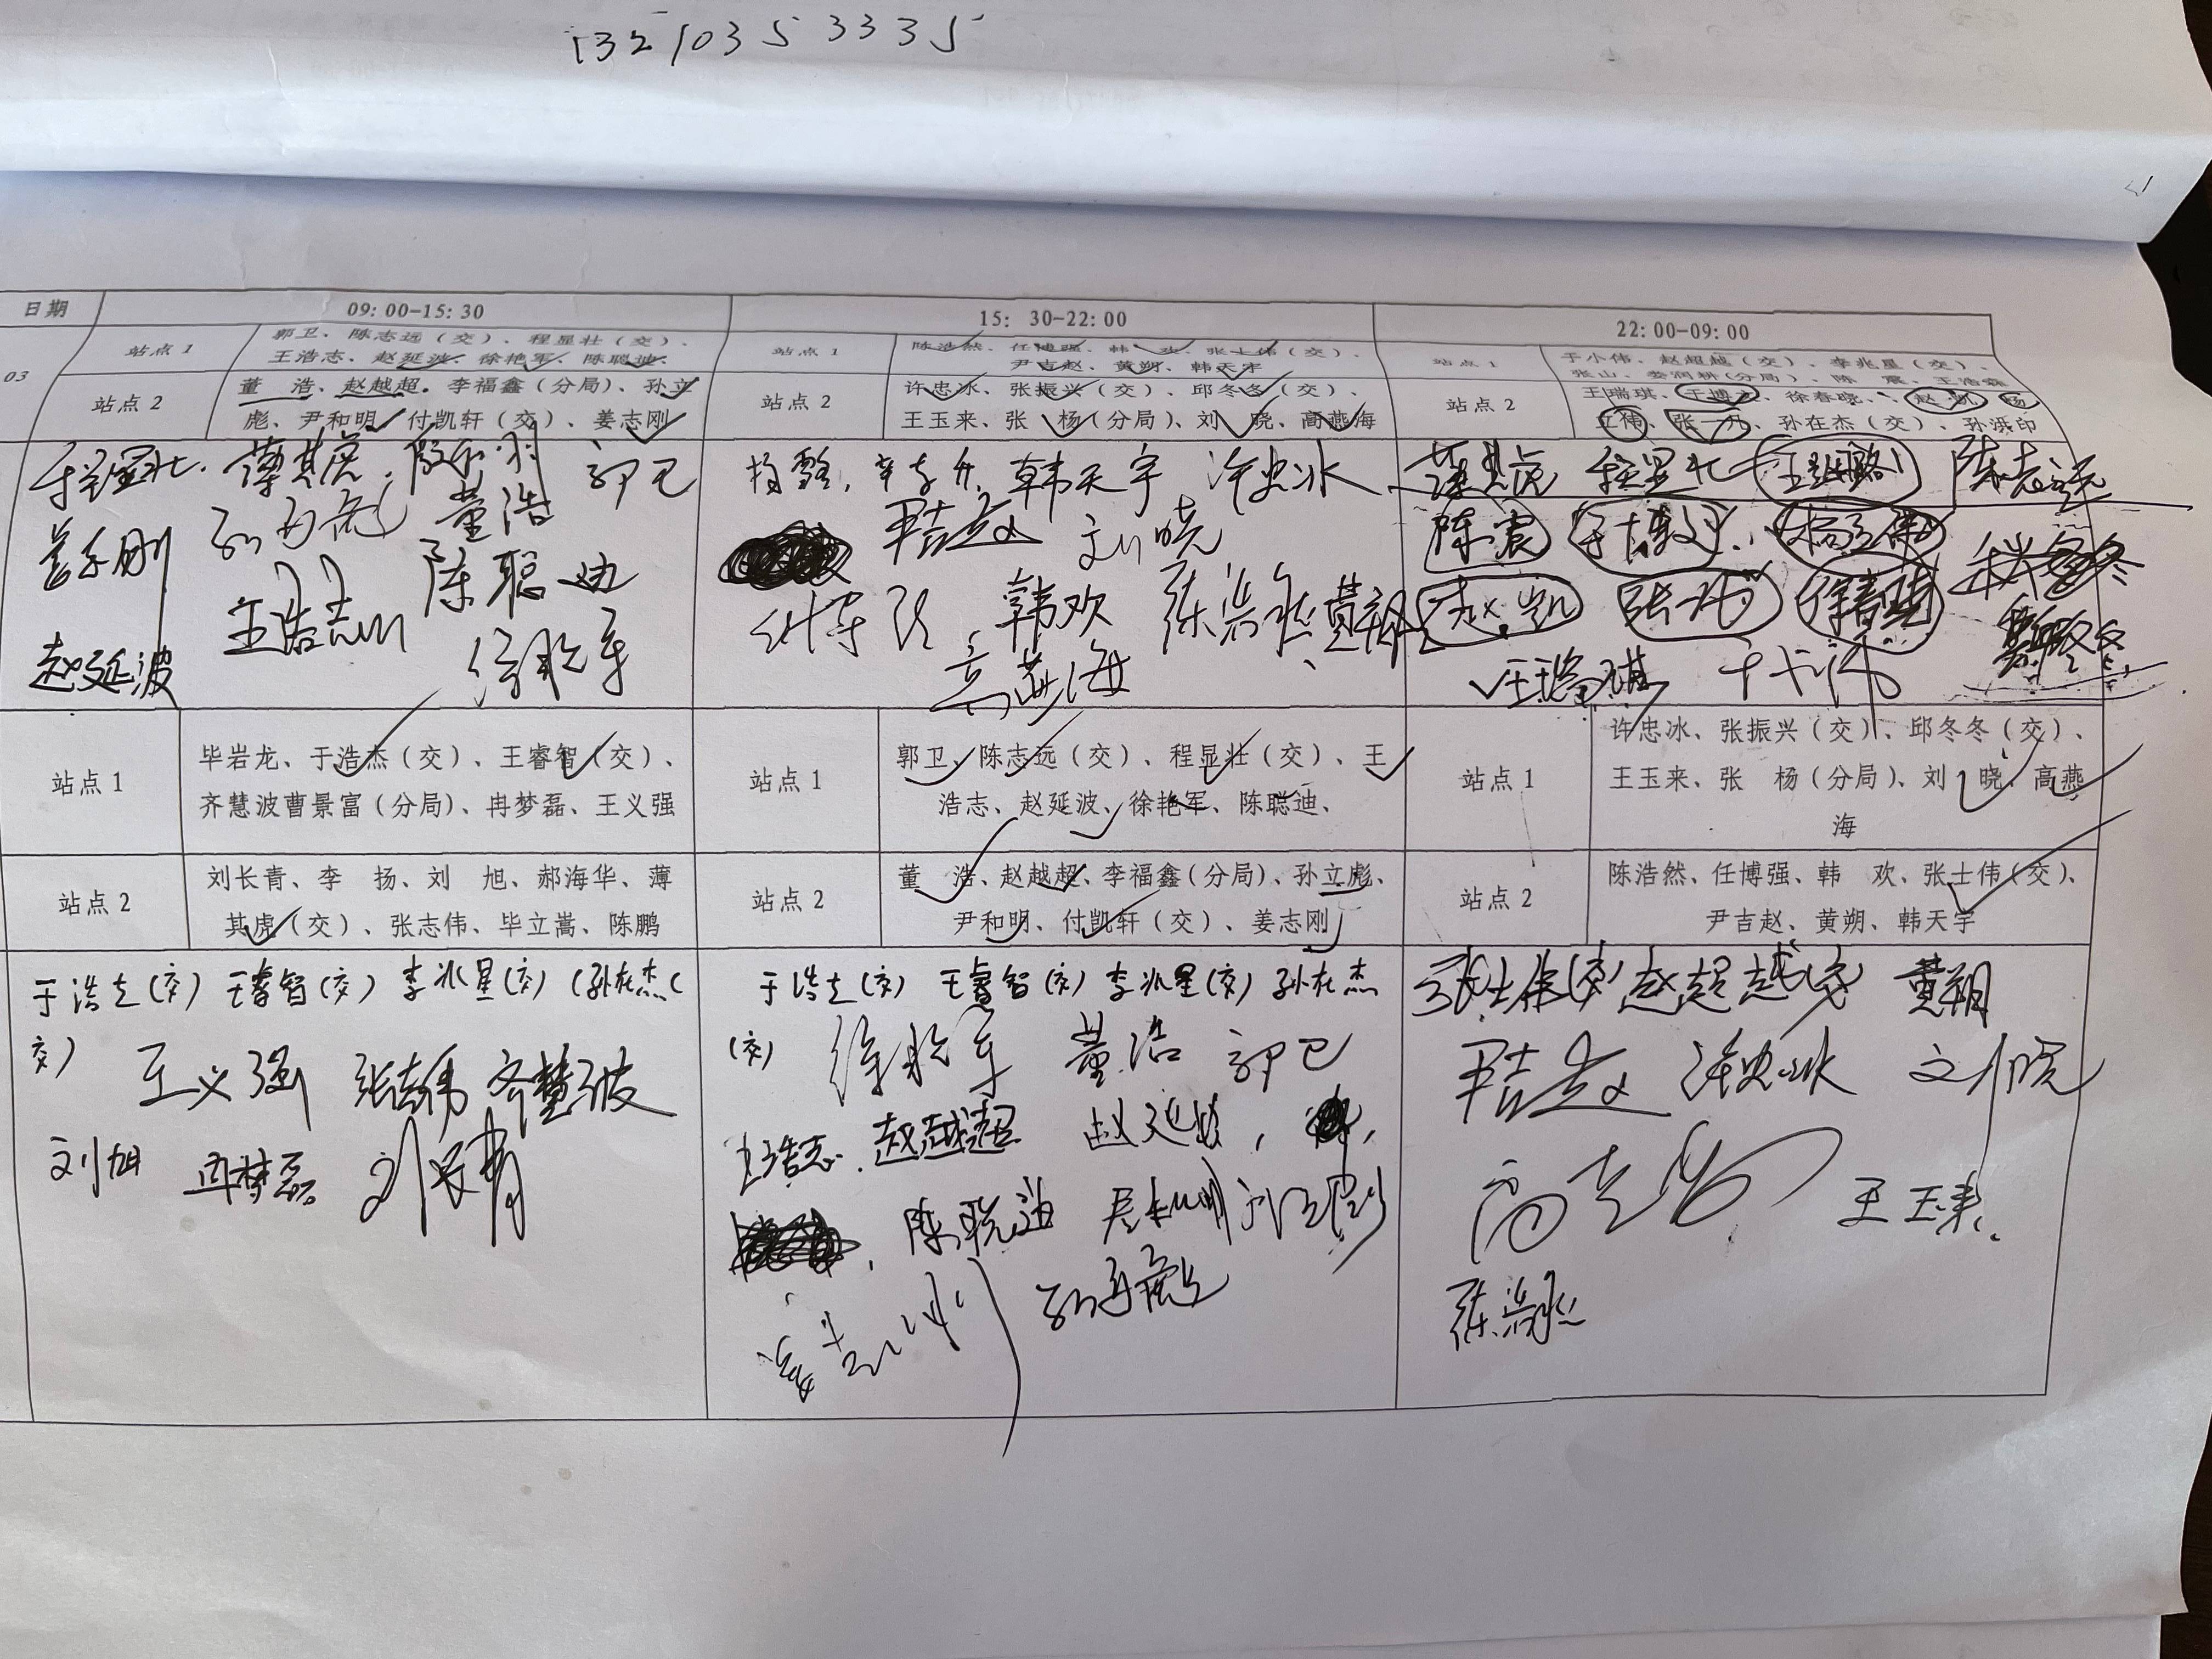 13210353335
日期 09:00-15:30 15:30-22:00 22:00-09:00
03
站点1
郭卫、陈志远(交)、程显壮(交)、
王浩志、赵延波、徐艳军、陈聪迪、
站点2
董 浩、赵越超。李福鑫(分局)、孙立
彪、尹和明、付凯轩(交)、姜志刚
站点1
陈浩然、任博强、韩 欢、张士伟(交)、
尹吉赵、黄朔、韩天宇
站点2
许忠冰、张振兴(交)、邱冬冬(交)、
王玉来、张 杨(分局)、刘 晓、高燕海
站点1
于小伟、赵超越(交)、李兆星(交)、
张山、娄润耕(分局)、陈 震、王浩霖
站点2
王瑞琪、于博文、徐春晓、、赵 凯、杨
立伟、张一乃、孙在杰(交)、孙洪印
薄其虎 郭卫
姜志刚 孙立彪 董浩
王浩志 陈聪迪
赵延波 徐艳军
韩天宇 许忠冰
尹吉赵 刘晓
韩欢 陈浩然 黄朔
高燕海
薄其虎 程显壮 陈志远
陈震 于博文 杨立伟
赵凯 徐春晓
王瑞琪
站点1
毕岩龙、于浩杰(交)、王睿智(交)、
齐慧波曹景富(分局)、冉梦磊、王义强
站点2
刘长青、李 扬、刘 旭、郝海华、薄
其虎(交)、张志伟、毕立嵩、陈鹏
站点1
郭卫、陈志远(交)、程显壮(交)、王
浩志、赵延波、徐艳军、陈聪迪、
站点2
董 浩、赵越超、李福鑫(分局)、孙立彪、
尹和明、付凯轩(交)、姜志刚
站点1
许忠冰、张振兴(交)、邱冬冬(交)、
王玉来、张 杨(分局)、刘 晓、高燕
海
站点2
陈浩然、任博强、韩 欢、张士伟(交)、
尹吉赵、黄朔、韩天宇
于浩杰(交) 王睿智(交) 李兆星(交) (孙在杰(
交) 王义强 张志伟 齐慧波
刘旭 冉梦磊 刘长青
于浩杰(交) 王睿智(交) 李兆星(交) 孙在杰
(交) 徐艳军 董浩 郭卫
王浩志. 赵越超 赵延波,
陈聪迪 尹和明
姜志刚 孙立彪
张士伟(交) 赵超越(交) 黄朔
尹吉赵 许忠冰 刘晓
王玉来
陈浩然